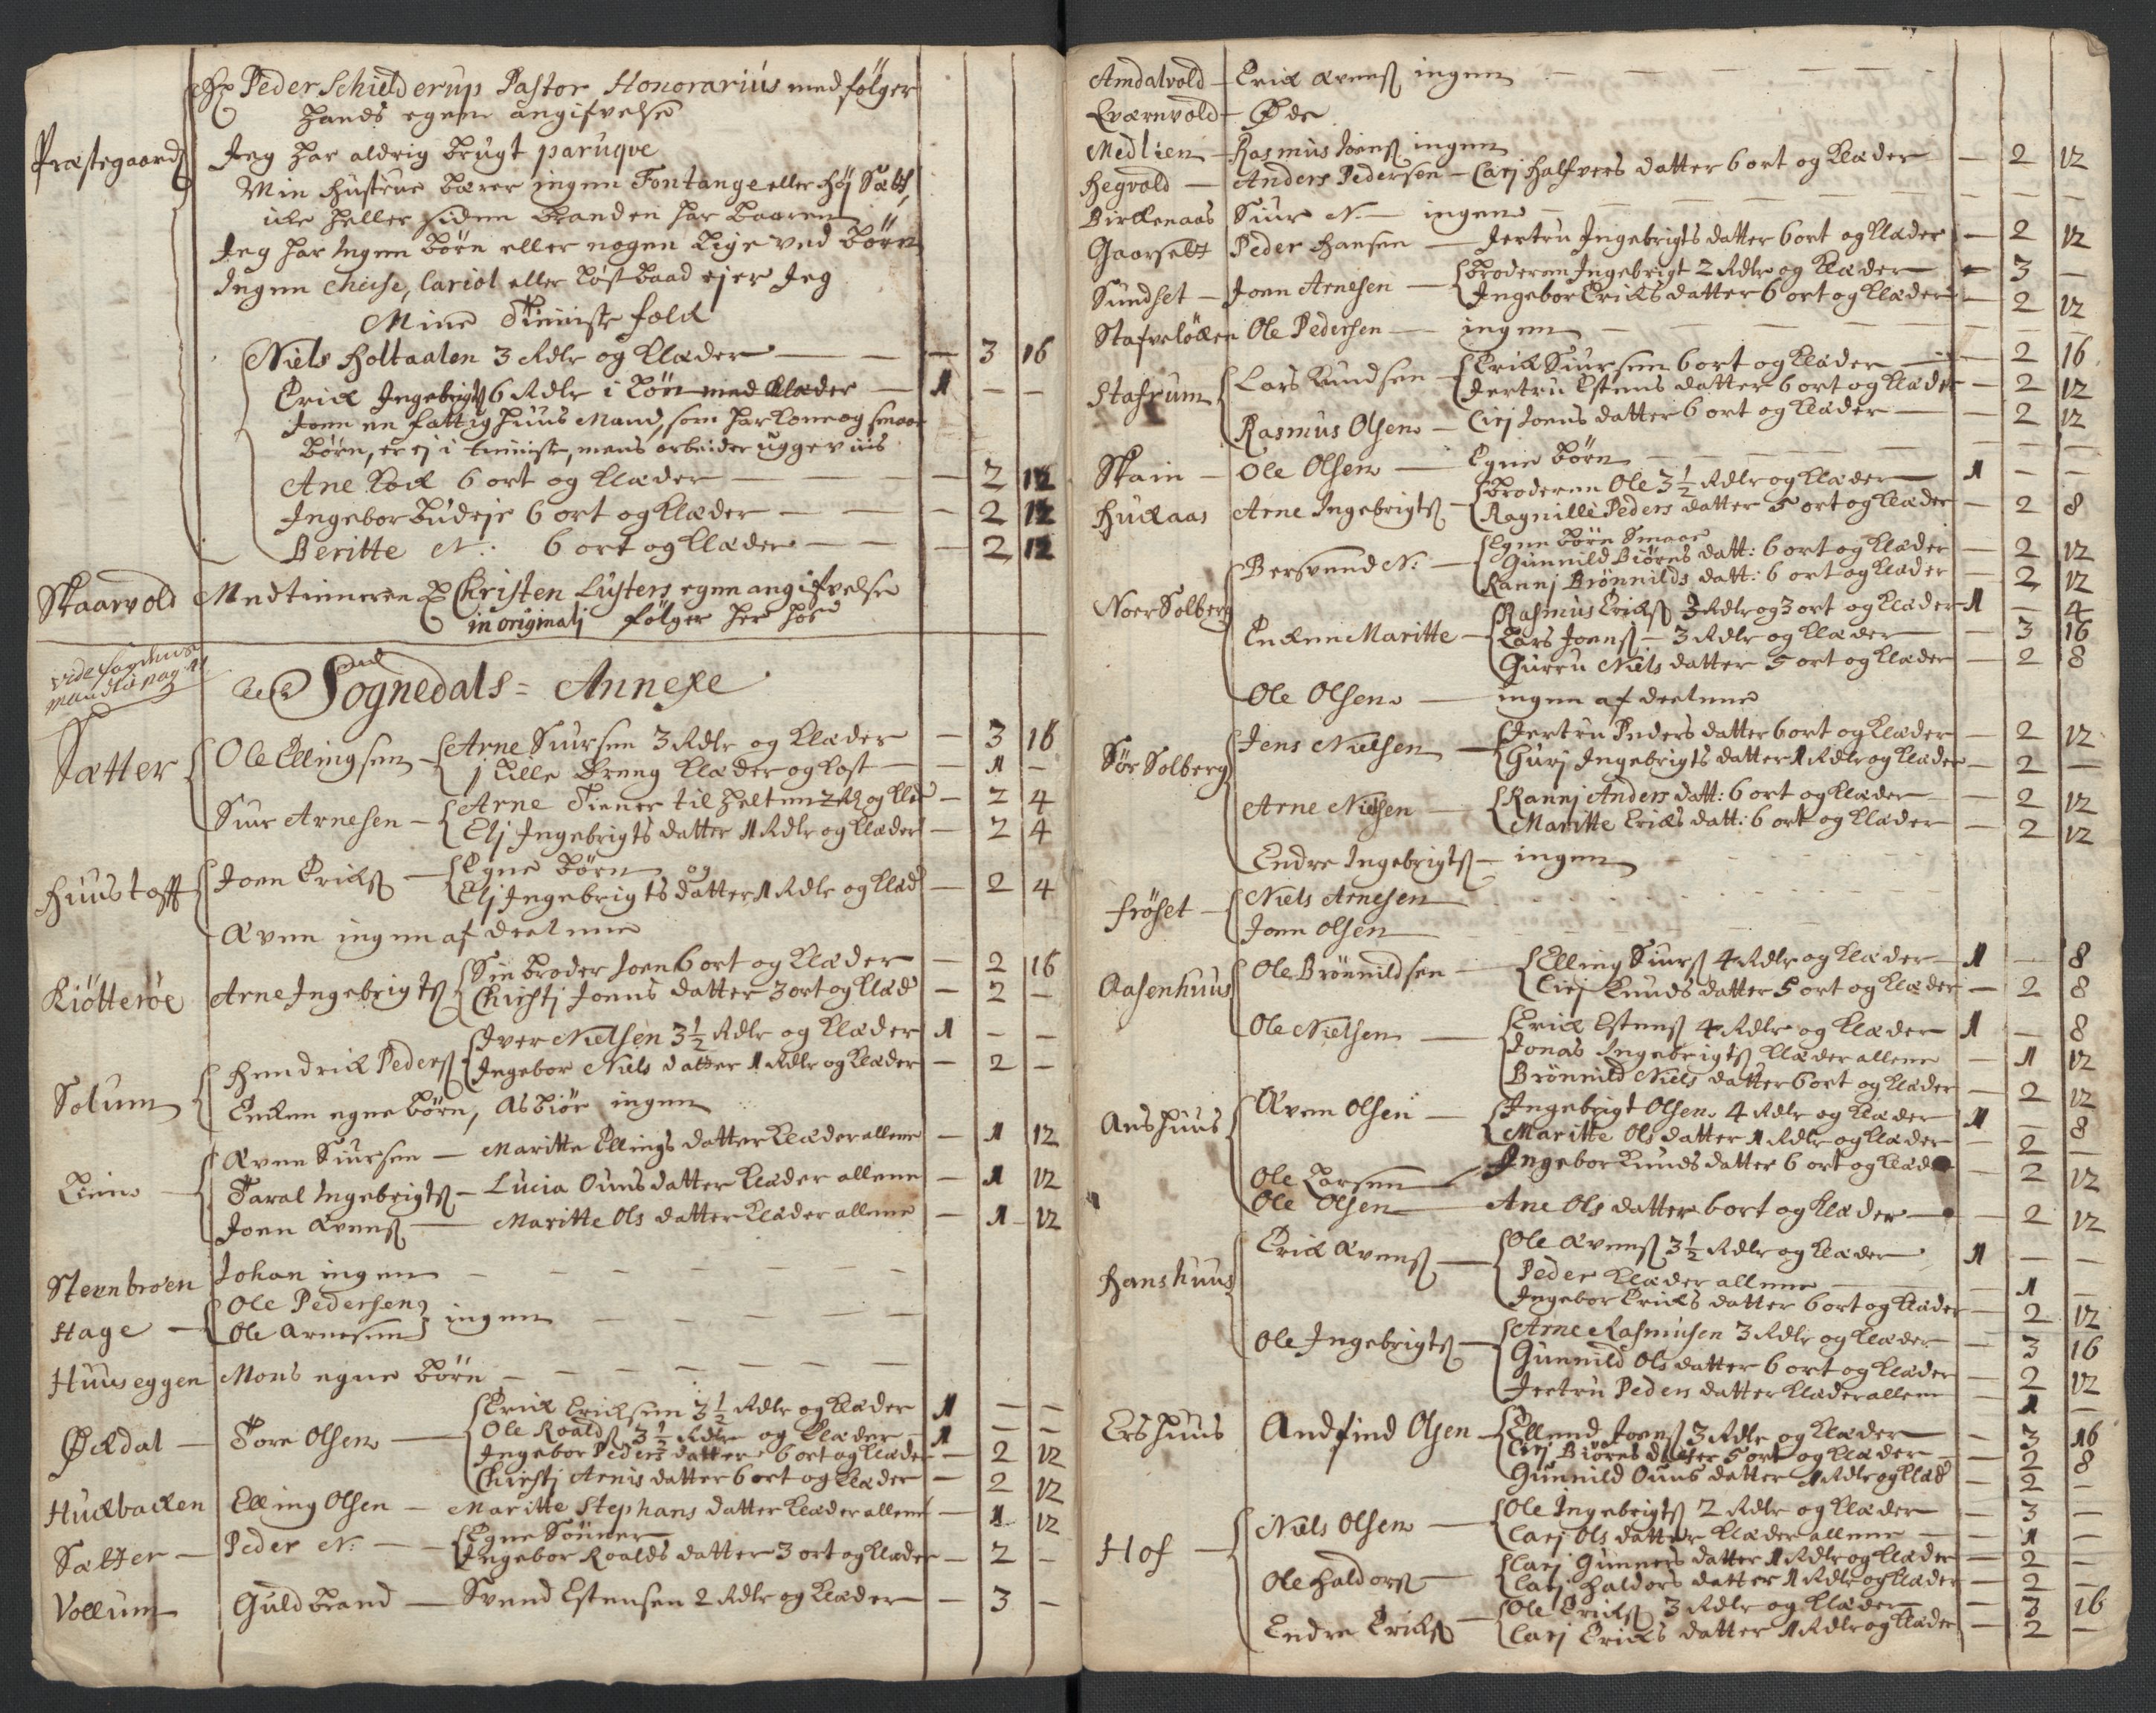 Hr Peder Schielderup Pastor Honorarius med følger
hands egene angifvelse
Præstegaard
Jeg har aldrig brugt paruqve
Min hustrue bærer ingen Fontange eller høj Sætt,
icke heller siden branden har baaren
Jeg har ingen børn eller nogen lige ved børn
Ingen cheise, cariol eller løstbaad ejer Jeg
Mine Tieniste folck
Niels Holtaalen 3 Rdlr og klæder — 3 16
Erick Ingebrigts 6 Rdlr i løn med klæder — 1 — —
Joen en fattig huus Mand, som har kone og smaae
børn, er ej i tieniste, mens arbeider uggeviis
Ane kock 6 ort og klæder — 2 12
Ingebor budeje 6 ort og klæder — 2 12
Beritte N: 6 ort og klæder — 2 12
Skaarvold Medtieneren Hr Christen Lusters egen angifvelse
in originali følger her hos
Sognedals Annexe
Sætter { Ole Ellingsen { Arne Siursen 3 Rdlr og klæder — 3 16
1 lille dreng klæder og kost — 1 —
Siur Arnesen { Arne Tiener til helten 2 Rd og klæd — 2 4
Elj Ingebrigts datter 1 Rdlr og klæder — 2 4
Huustoft { Joen Ericks { Egne børn og
Elj Ingebrigts datter 1 Rdlr og klæd — 2 4
Æven ingen af deelene
Kiötteröe Arne Ingebrigts { Sin broder Joen 6 ort og klæder — 2 16
Chirstj Joens datter 3 ort og klæd — 2 —
Solum { Hendrick Peders { Iver Nielsen 3½ Rdlr og klæder 1 — —
Ingebor Niels datter 1 Rdlr og klæder — 2 —
Encken egne børn, Asbiör ingen
Liene { Æven Siursen — Maritte Ellings datter klæder allene — 1 12
Taral Ingebrigts — Lucia Ouns datter klæder allene — 1 12
Joen Ævens — Maritte Ols datter klæder allene — 1 12
Steenbroen Johan ingen
Hage { Ole Pedersen
Ole Arnesen } ingen
Huuseggen Mons egne børn
Øckdal Tore Olsen { Erick Ericksen 3½ Rdlr og klæder 1 — —
Ole Roalds 3½ Rdlr og klæder 1 — —
Ingebor Peders datter 6 ort og klæder — 2 12
Chirstj Arnis datter 6 ort og klæder — 2 12
Huckbacken Elling Olsen — Maritte Stephans datter klæder allene — 1 12
Sætter Peder N: { Egne Sønner
Ingebor Roalds datter 3 ort og klæder — 2 —
Vollum Guldbrand — Svend Estensen 2 Rdlr og klæder — 3 —
Amdalvold Erick Ævens ingen
Qværnvold Øde
Medlien Rasmus Joens ingen
Hegvold Anders Pedersen — Carj Halfvers datter 6 ort og klæder — 2 12
Birckenaas Siur N. ingen
Gaarselt Peder Hansen — Jertru Ingebrigts datter 6 ort og klæder — 2 12
Sundset Joen Arnesen { Broderen Ingebrigt 2 Rdlr og klæder — 3 —
Ingebor Ericks datter 6 ort og klæder — 2 12
Stafveløcken Ole Pedersen ingen
Stafrum { Lars Knudsen { Erick Siursen 6 ort og klæder — 2 16
Jertru Estens datter 6 ort og klæder — 2 12
Rasmus Olsen — Cirj Joens datter 6 ort og klæder — 2 12
Skain Ole Olsen Egne børn
Huckaas Arne Ingebrigts { Broderen Ole 3½ Rdlr og klæder 1 — —
Ragnille Peders datter 5 ort og klæder — 2 8
Noer Solberg { Bersvend N: { Egne børn Smaae
Gunnild Biörns datt: 6 ort og klæder — 2 12
Rannj Brönnilds datt: 6 ort og klæder — 2 12
Encken Maritte { Rasmus Ericks 3 Rdlr og 3 ort og klæder 1 — 4
Lars Joens — 3 Rdlr og klæder — 3 16
Gurru Niels datter 5 ort og klæder — 2 8
Ole Olsen ingen af deelene
Sör Solberg { Jens Nielsen { Jertru Peders datter 6 ort og klæder — 2 12
Gurj Ingebrigts datter 1 Rdlr og klæder — 2 —
Arne Nielsen { Rannj Anders datt: 6 ort og klæder — 2 12
Maritte Ericks datt: 6 ort og klæder — 2 12
Endre Ingebrigts — ingen
Fröset { Niels Arnesen
Joen Olsen
Aasenhuus { Ole Brönnildsen { Elling Siurs 4 Rdlr og klæder 1 — 8
Cirj Knuds datter 5 ort og klæder — 2 8
Ole Nielsen { Erick Estens 4 Rdlr og klæder 1 — 8
Jonas Ingebrigts klæder allene — 1 12
Brönnild Niels datter 6 ort og klæder — 2 12
Aushuus { Æven Olsen { Ingebrigt Olsen 4 Rdlr og klæder 1 — 8
Maritte Ols datter 1 Rdlr og klæder — 2 —
Ole Larsen Ingebor Knuds datter 6 ort og klæder — 2 12
Ole Olsen Ane Ols datter 6 ort og klæder — 2 12
Hanshuus { Erick Ævens { Ole Ævens 3½ Rdlr og klæder 1 — —
Peder klæder allene — 1 —
Ingebor Ericks datter 6 ort og klæder — 2 12
Ole Ingebrigts { Arne Rasmusen 3 Rdlr og klæder — 3 16
Gunnild Ols datter 6 ort og klæder — 2 12
Jertru Peders datter klæder allene — 1 —
Ershuus Andfind Olsen { Ellend Joens 3 Rdlr og klæder — 3 16
Cirj Biörns datter 5 ort og klæder — 2 8
Gunnild Ouns datter 1 Rdlr og klæd — 2 —
Hof { Niels Olsen { Ole Ingebrigts 2 Rdlr og klæder — 3 —
Carj Ols datter klæder allene — 1 —
Ole Haldors { Carj Gunners datter 1 Rdlr og klæder — 2 —
Carj Haldors datter 1 Rdlr og klæder — 2 —
Endre Ericks { Ole Ericks 3 Rdlr og klæder — 3 16
Carj Ericks datter 1 Rdlr og klæder — 2 —